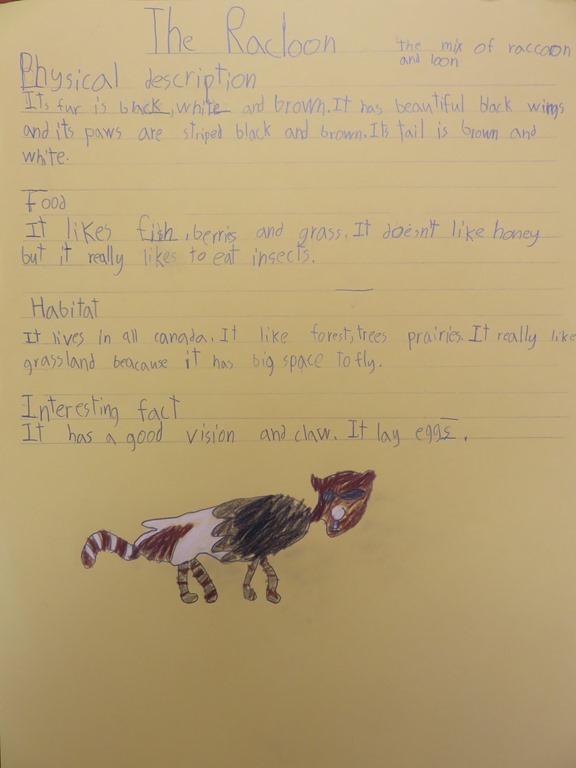 The Racloon
the mix of raccoon
and loon
Physical description
Its fur is black, white and brown. It has beautiful black wings
and its paws are striped black and brown. Its tail is brown and
white.
Food
It likes fish, berries and grass. It doesn't like honey
but it really likes to eat insects.
Habitat
It lives in all canada. It like forest, trees prairies. It really like
grassland beacause it has big space to fly.
Interesting fact
It has a good vision and claw. It lay eggs.